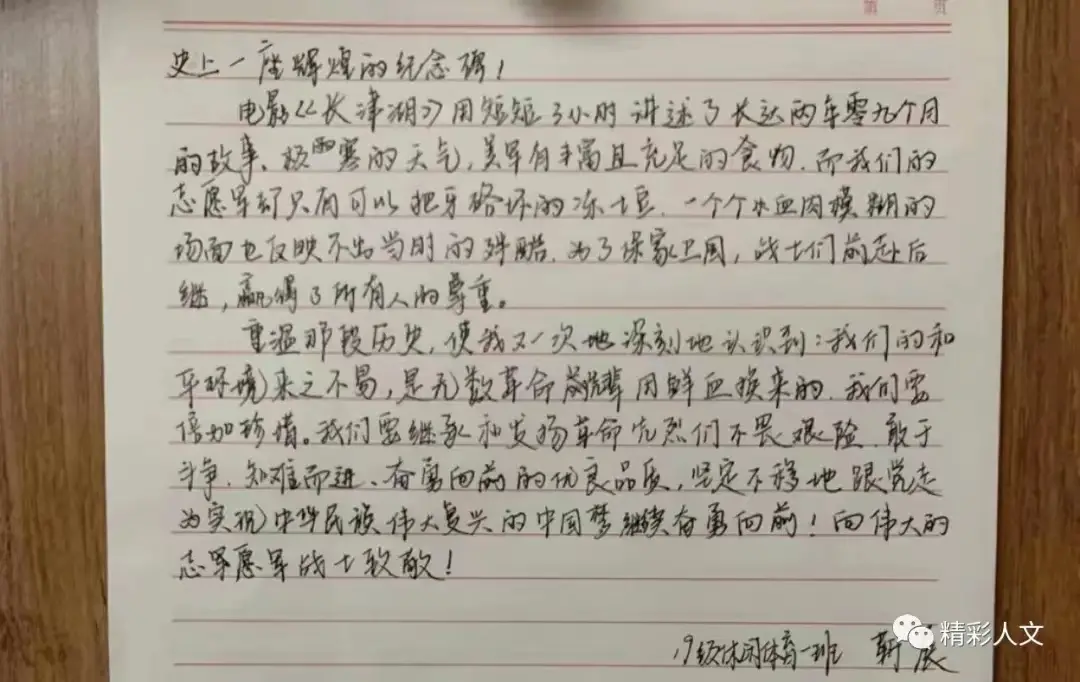 第 页
史上一座辉煌的纪念碑!
电影《长津湖》用短短3小时讲述了长达两年零九个月
的故事、极寒的天气,美军有丰富且充足的食物.而我们的
志愿军却只有可以把牙硌坏的冻土豆.一个个血肉模糊的
场面也反映不出当时的残酷.为了保家卫国,战士们前赴后
继,赢得了所有人的尊重。
重温那段历史,使我又一次地深刻地认识到:我们的和
平环境来之不易,是无数革命前辈用鲜血换来的.我们要
倍加珍惜。我们要继承和发扬革命先烈们不畏艰险.敢于
斗争.知难而进、奋勇向前的优良品质,坚定不移地跟党走
为实现中华民族伟大复兴的中国梦继续奋勇向前!向伟大的
志愿军战士致敬!
19级休闲体育一班 靳展
精彩人文